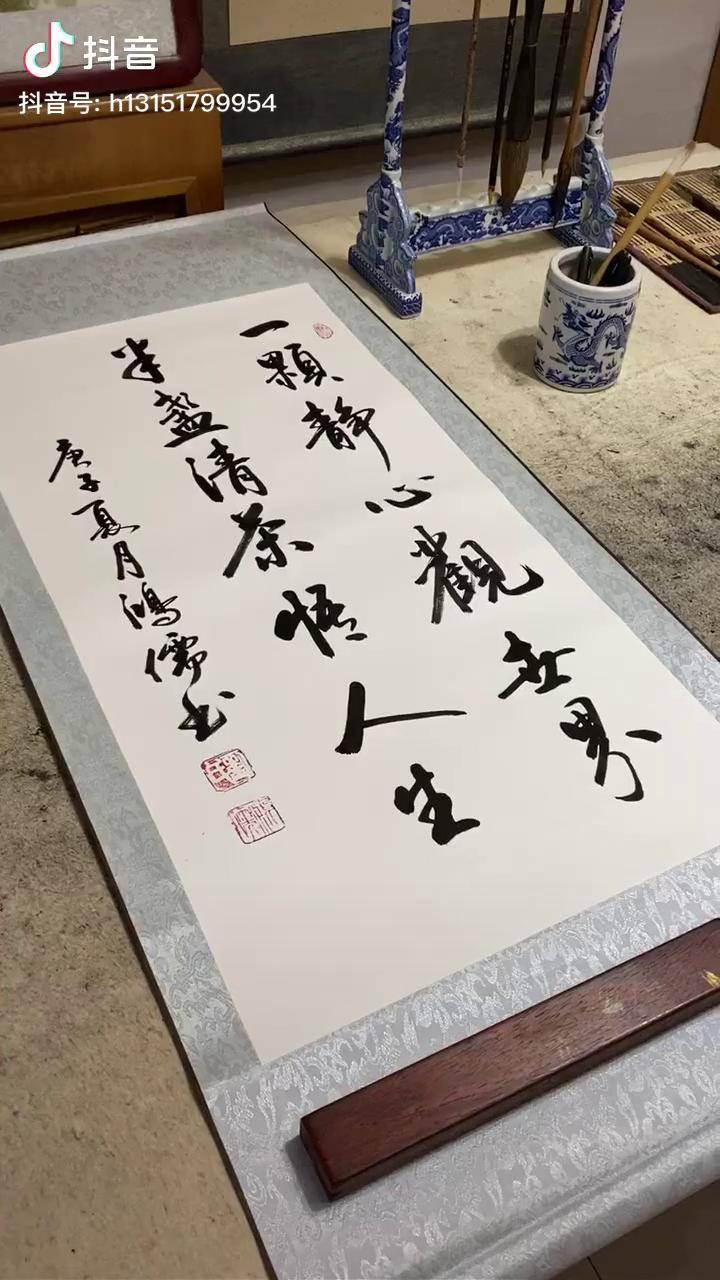 抖音
抖音号: h13151799954
一颗静心觀世界
半盏清茶悟人生
庚子夏月鴻儒书